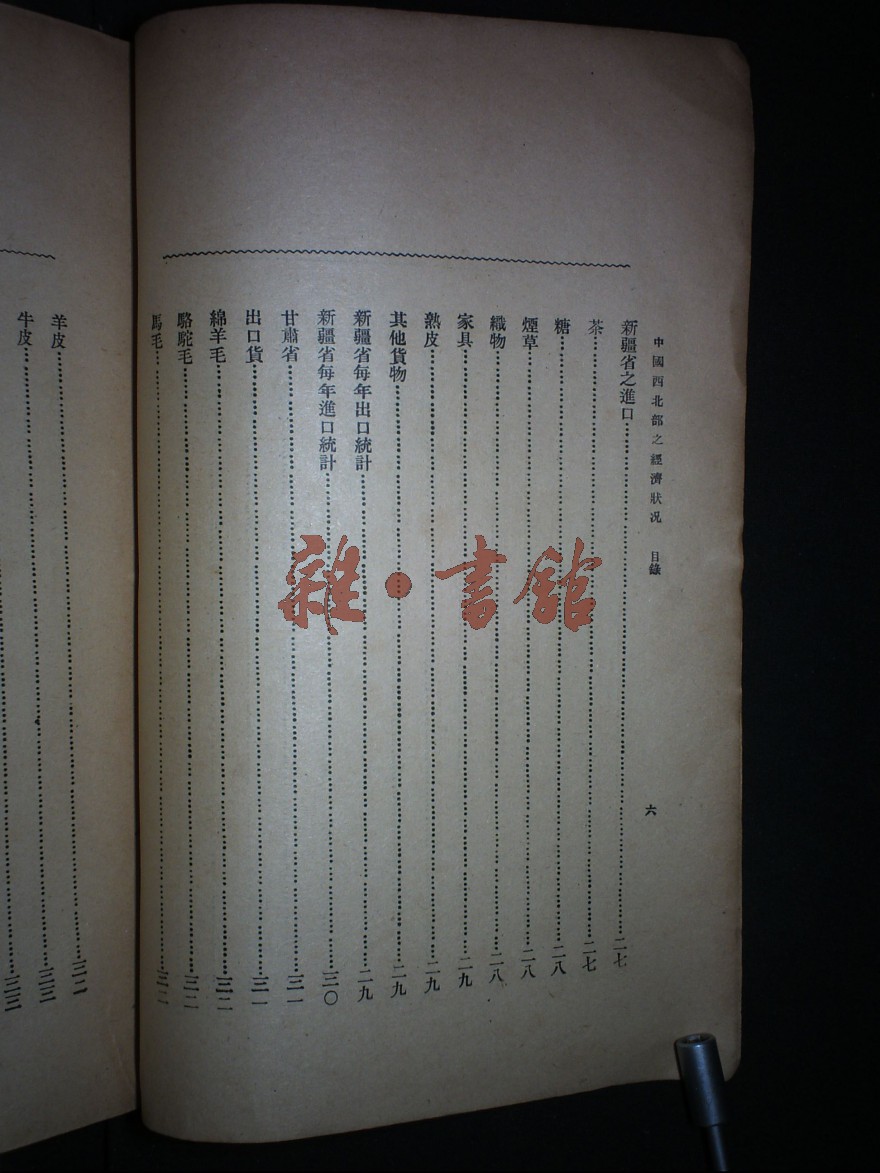 中國西北部之經濟狀況 目錄 六
新疆省之進口…二七
茶…二七
糖…二八
煙草…二八
織物…二八
家具…二九
熟皮…二九
其他貨物…二九
新疆省每年出口統計…二九
新疆省每年進口統計…三〇
甘肅省…三一
出口貨…三一
綿羊毛…三二
駱駝毛…三二
馬毛…三二
羊皮…三二
牛皮…三三
三三
雜·書館